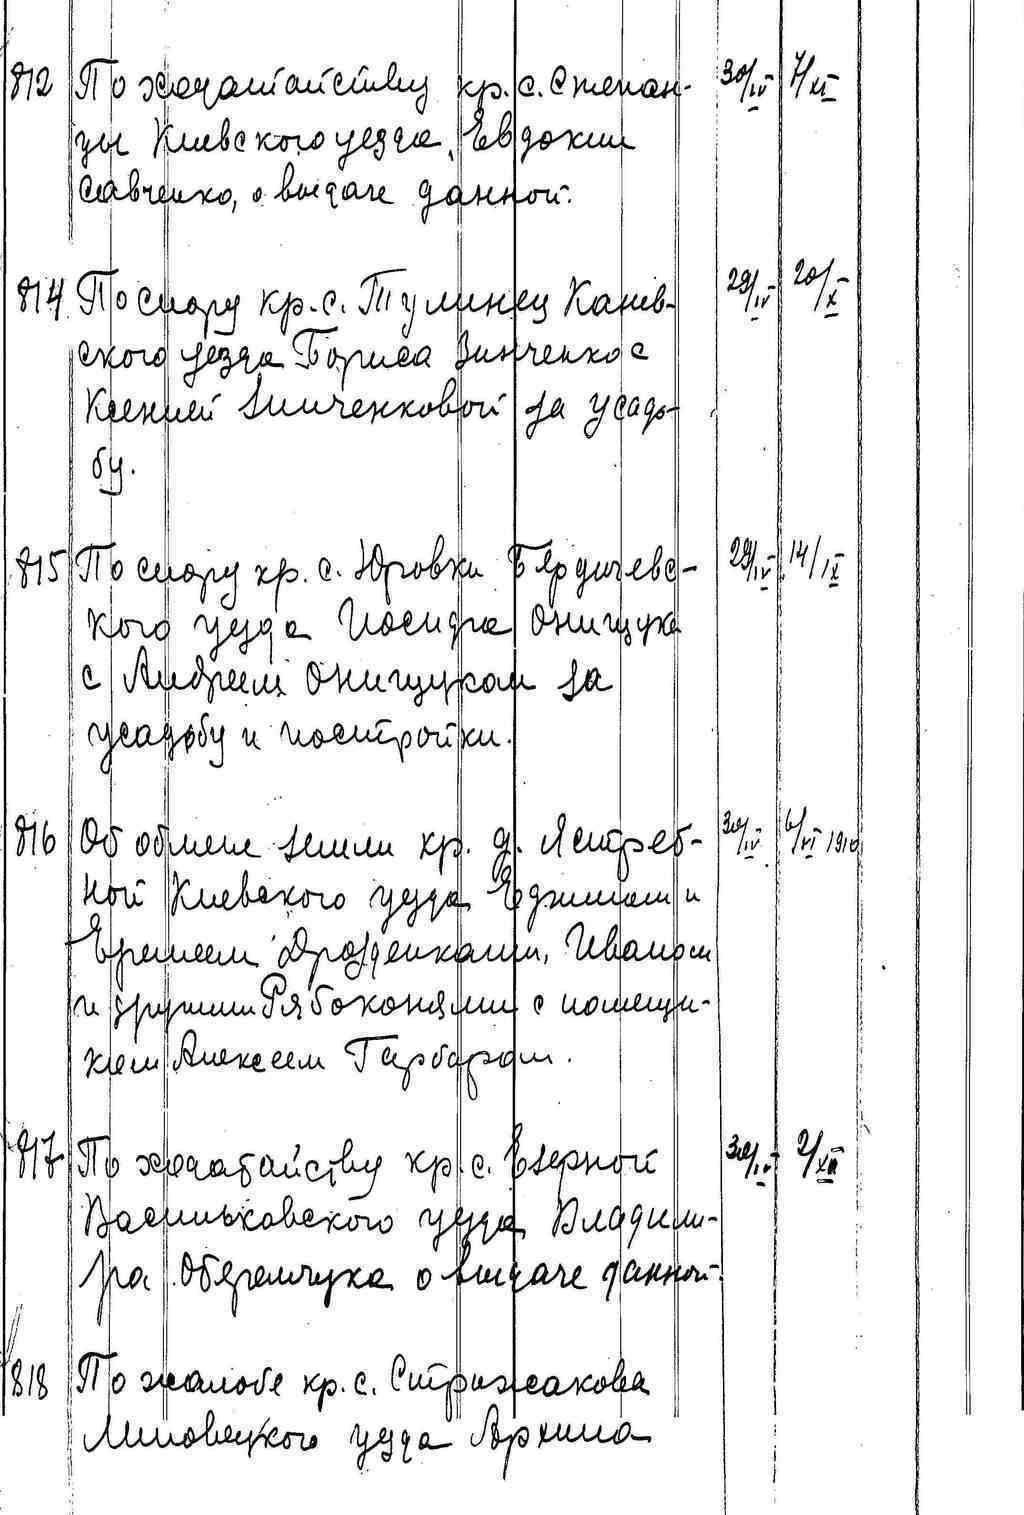 812 По ходатайству кр. с. Степан- 30/IV 7/XI
цы Киевского уезда, Евдокии
Савченко, о выдаче данной.
814 По спору кр. с. Тулинец Канев- 29/IV 20/X
ского уезда Бориса Зинченко с
Ксенией Зинченковой за усадь-
бу.
815 По спору кр. с. Юровки Бердичевс- 29/IV 14/IX
кого уезда Иосифа Онищука
с Андреем Онищуком за
усадьбу и постройки.
816 Об обмене земли кр. д. Ястреб- 30/IV 6/VI 1910
ной Киевского уезда и
Еремеем Дрозденками, Иваном
и другими Рябоконями с помещи-
ком Алексеем Гарбаром.
817 По ходатайству кр. с. Езерной 30/IV 2/XII
Васильковского уезда Владими-
ра Оберемчука о выдаче данной.
818 По жалобе кр. с. Стрижакова
Липовецкого уезда Архипа